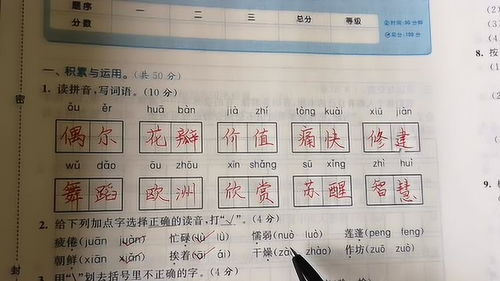 题序 一 二 三 总分 等级
分数
时间:90分钟
总分:100分
一、积累与运用。(共50分)
1. 读拼音,写词语。(10分)
ǒu ěr huā bàn jià zhí tòng kuài xiū jiàn
偶尔 花瓣 价值 痛快 修建
wǔ dǎo ōu zhōu xīn shǎng sū xǐng zhì huì
舞蹈 欧洲 欣赏 苏醒 智慧
2. 给下列加点字选择正确的读音,打“√”。(4分)
疲倦(juān juàn) 忙碌(lù lü) 懦弱(nuò luò) 莲蓬(peng feng)
朝鲜(xiān xiǎn) 挨着(āi ái) 干燥(zào zhào) 作坊(zuō zuò)
3. 用“\”划去括号里不正确的字。(4分)
密
封
8. 按
(1
9.